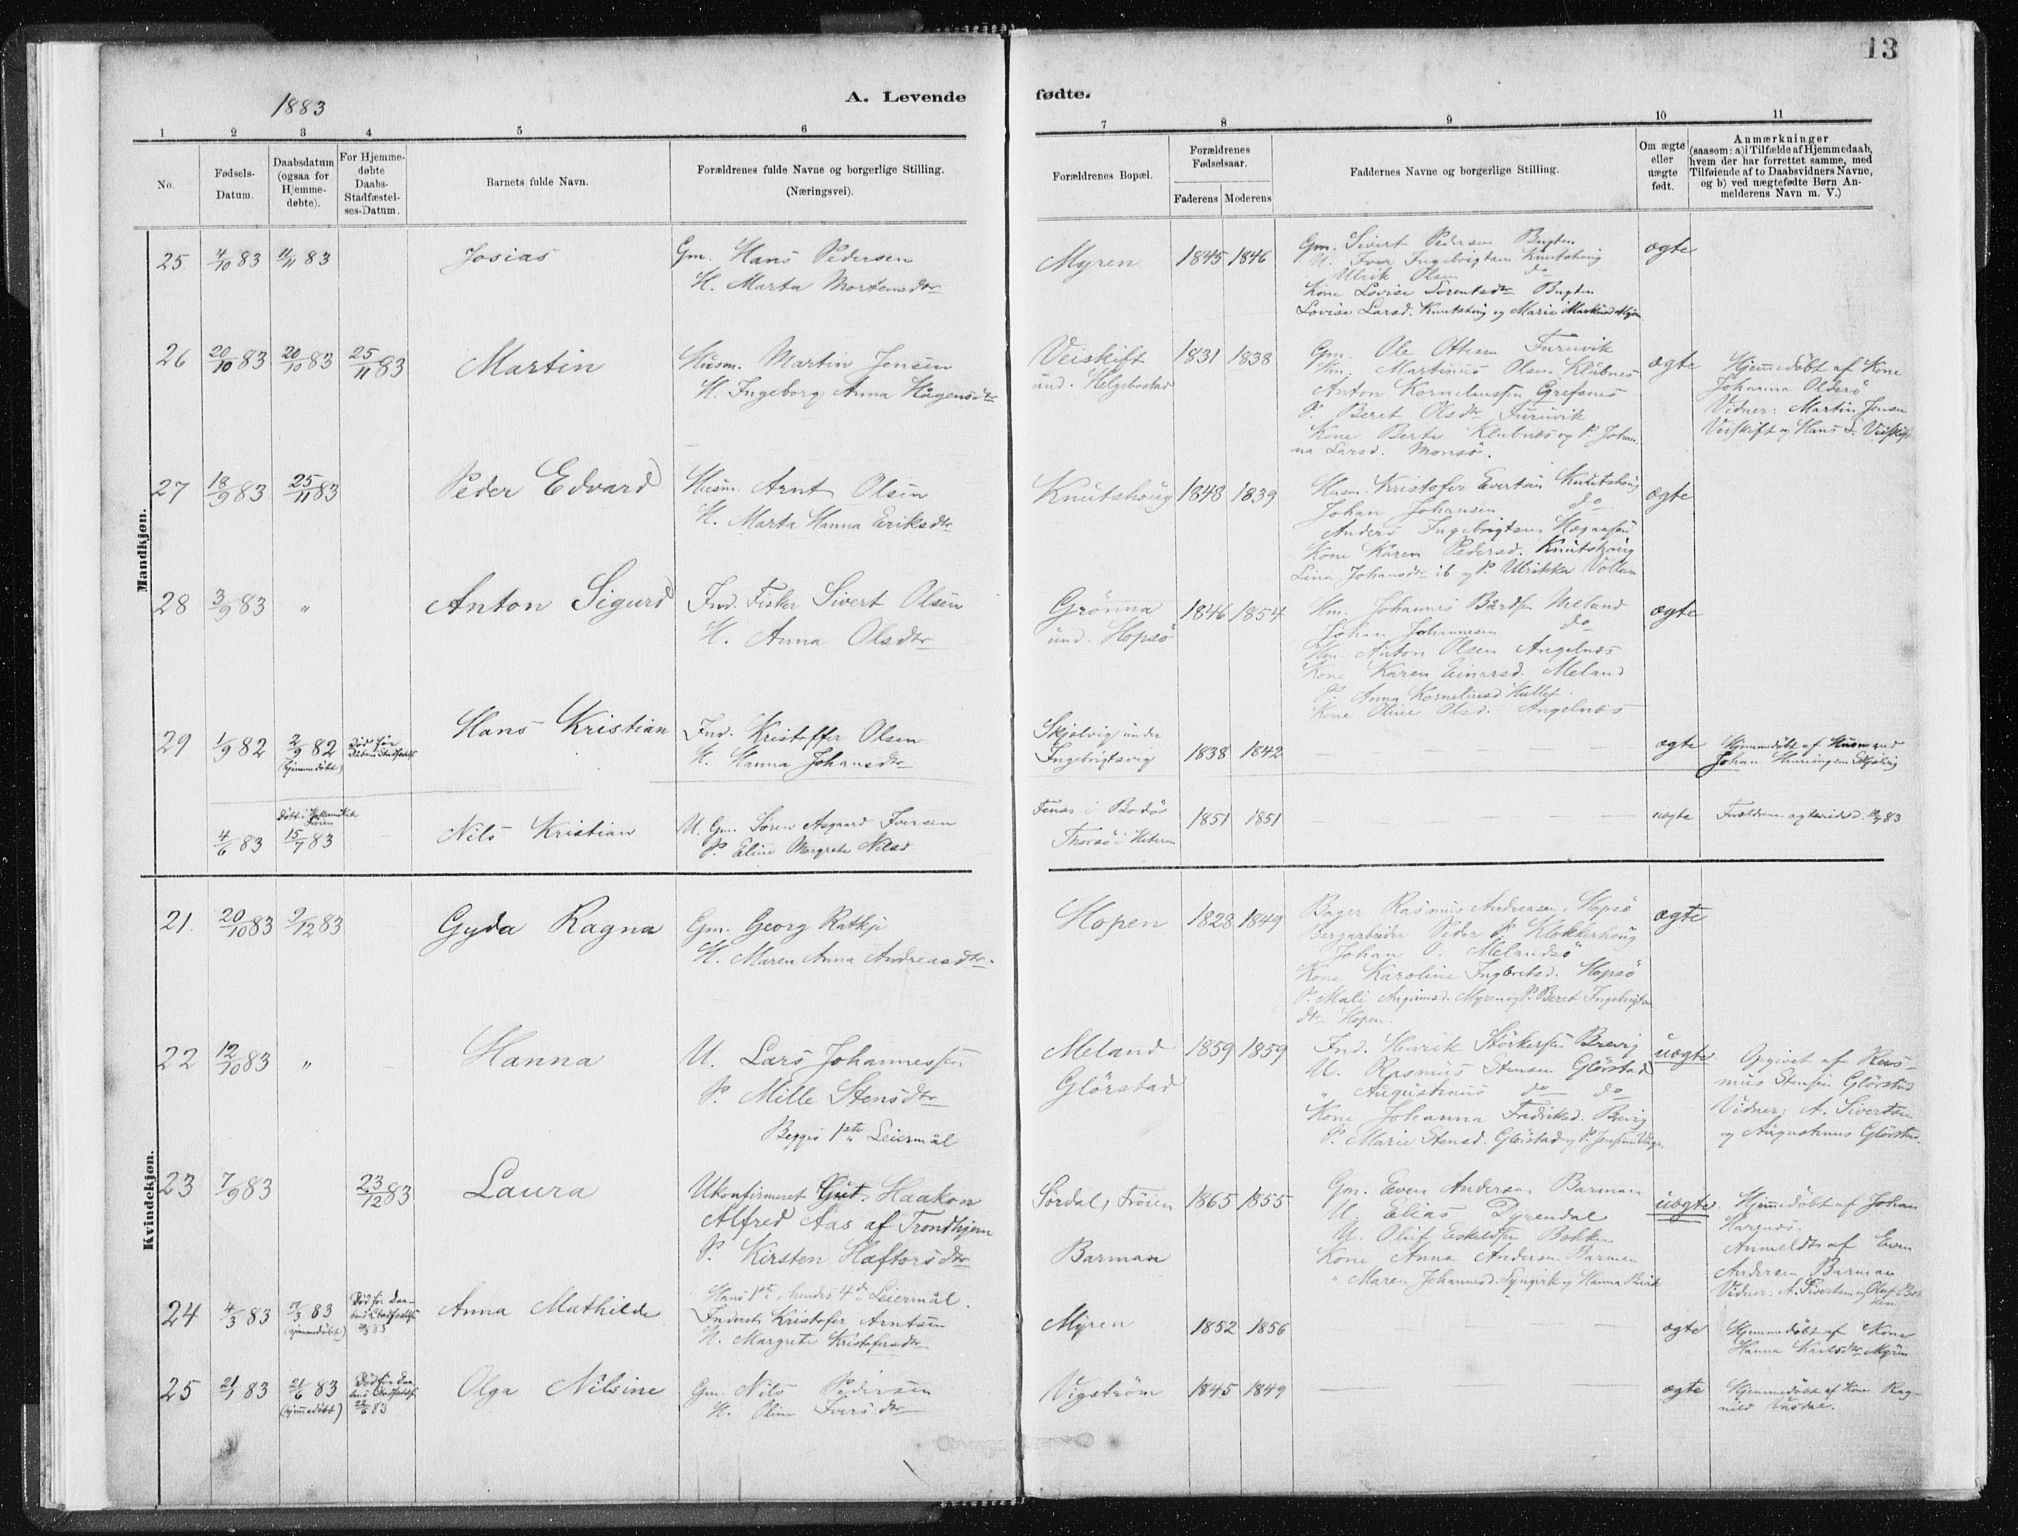 13
1883
A. Levende
fødte.
1 2 3 4 5 6 7 8 9 10 11
No.
Fødsels-Datum.
Daabsdatum (ogsaa for Hjemme-døbte).
For Hjemme-døbte Daabs-Stadfæstel-ses-Datum.
Barnets fulde Navn.
Forældrenes fulde Navne og borgerlige Stilling. (Næringsvei).
Forældrenes Bopæl.
Forældrenes Fødselsaar.
Faderens Moderens
Faddernes Navne og borgerlige Stilling.
Om ægte eller uægte født.
Anmærkninger
(saasom: a) i Tilfælde af Hjemmedaab, hvem der har forrettet samme, med Tilføiende af to Daabsvidners Navne, og b) ved uægtefødte Børn An-melderens Navn m. V.)
Mandkjøn.
25 4/10 83 11/11 83 Josias
Gm. Hans Pedersen
H. Marta Mortensdtr
Myren 1845 1846
Gm. Sivert Pedersen Bugten
U. Iver Ingebrigtsen Knutshoug
Ulrik Olsen do
Kone Lovise Lorentsdtr Bugten
Lovise Larsd. Knutshoug og Marie
ægte
26 20/10 83 20/10 83 25/11 83 Martin
Husm. Martin Jensen
H. Ingeborg Anna Hågensdtr
Veiskift
und. Helgebostad
1831 1838
Gm. Ole Ottesen Furuvik
Martinus Olsen Klubnes
Anton Kornelius­sen Grefsnes
P. Beret Olsdtr Furuvik
Kone Berte Klubnes og P. Johan-
na Larsd. Monsø.
ægte
Hjemmedøbt af Kone
Johanna Olderø
Vidner: Martin Jensen
Veiskift og Hans L. Veiskift
27 18/9 83 25/11 83 Peder Edvard
Husm. Arnt Olsen
H. Marta Hanna Eriksdtr
Knutshoug 1848 1839
Husm. Kristofer Evertsen Knutshoug
Johan Johansen do
Anders Ingebrigtsen
Kone Karen Pedersd. Knutshoug
Lina Johansdtr ib og P. Ulrikka Vollan
ægte
28 3/9 83 " Anton Sigurd
Ind. Fisker Sivert Olsen
H. Anna Olsdtr
Grønna
und. Hopsø
1846 1854
Johannes Bårdsen Meland
Johan Johannesen do
Anton Olsen Angelnes
Kone Karen Einarsd. Meland
P. Anna Korneliusd
Kone Oline Olsd. Angelnes
ægte
29 1/9 82 2/9 82 (hjemmedøbt) Død før Daabens Stadfæstelse
Hans Kristian
Ind. Kristoffer Olsen
H. Hanna Johansdtr
Skjølvig under
Ingebrigtsvig
1838 1842
ægte
Hjemmedøbt af Husmand
Johan Henningsen
4/6 83 15/7 83 Nils Kristian
U. Gm. Søren Aagaard Iversen
P. Eline Margrete Nilsd
i Bodø
Thorsø i Hiteren
1851 1851
uægte
Kvindekjøn.
21. 20/10 83 9/12 83 Gyda Ragna
Gm. Georg Ratkje
H. Maren Anna Andreasdtr.
Hopen 1828 1849
Bager Rasmus Andreasen, Hopsø
Bergarbeider Peder P. Klokkerhoug
Johan O. Melandsø
Kone Karoline Ingbretsd. Hopsø
P. Mali Myren og P. Beret Ingebrigts
dtr Hopen.
ægte
22 12/10 83 " Hanna
U. Lars Johannessen
P. Mille Stensdtr
Begges 1ste Leiermål
Meland
Glørstad
1859 1859
Ind. Henrik Størkersen Brevig
U. Rasmus Stensen Glørstad
" Augustinus do do
Kone Johanna Fredriksd. Brevig
P. Marie Stensd. Glørstad og P.
uægte.
Opgivet af Ras-
mus Stensen Glørstad
Vidner: A. Sivertsen
og Augustinus Glørstad.
23 7/9 83 23/12 83 Laura
Ukonfirmeret Gut. Haakon
Alfred Aas af Trondhjem
P. Kirsten Haftorsdtr
Hans 1ste, hendes 4de Leiermål.
Sørdal, Frøien
Barman
1865 1855
Gm. Even Andersen Barman
U. Elias Dyrendal
U. Oluf Eskildsen Bokken
Kone Anna Andersen Barman
" Maren Johannesd. og Hanna
uægte
Hjemmedøbt af Johan
Anmeldt af Even
Andersen Barman
Vidner: A. Sivertsen og Oluf
24 4/3 83 83 (hjemmedøbt) Død før Daa-
bens Stadfæstelse
Anna Mathilde
Inderst Kristofer Arntsen
H. Margrete Kristofersdtr
Myren 1852 1856
ægte
Hjemmedøbt af Kone
Hanna Karlsdtr Myren
25 21/1 83 21/6 83 (hjemmedøbt) Død før Daa-
bens Stadfæstelse
Olga Nilsine
Gm. Nils Pedersen
H. Oline Iversdtr
Vigstrøm 1845 1849
ægte
Hjemmedøbt af Kone Rag-
nild